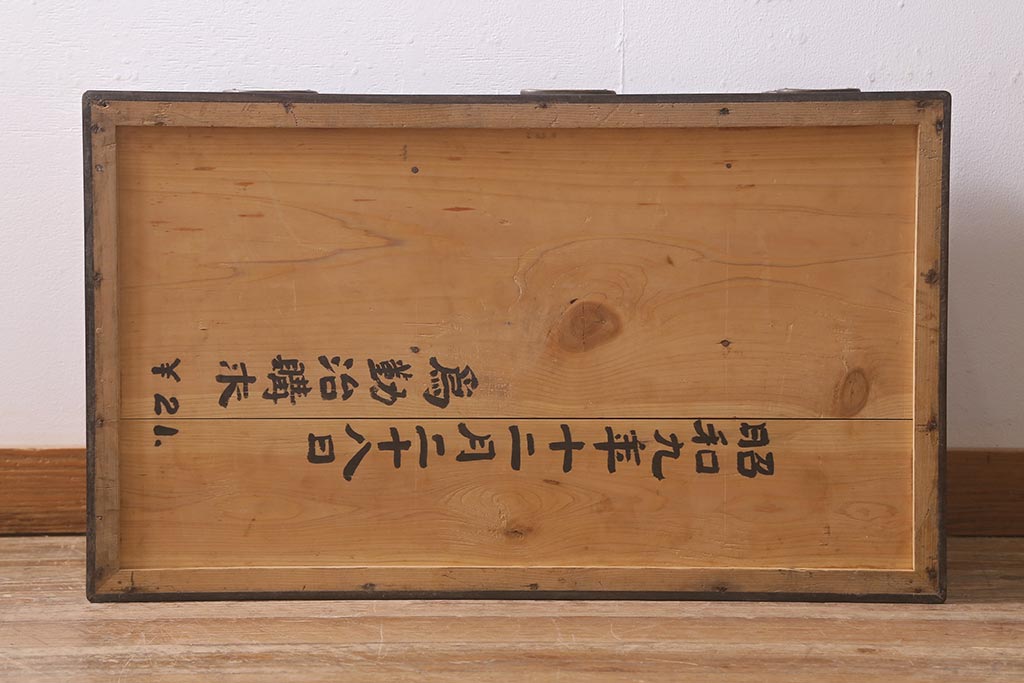 昭和九年十二月二十八日
爲勤治購求
¥21.